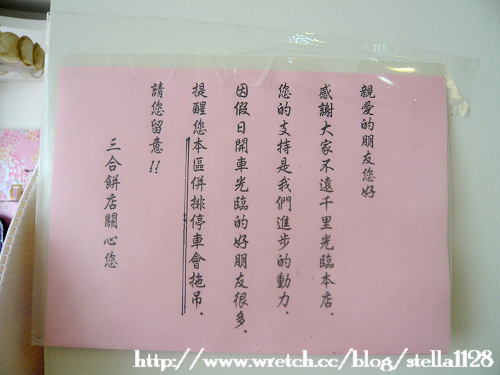 親愛的朋友您好
感謝大家不遠千里光臨本店.
您的支持是我們進步的動力.
因假日開車光臨的好朋友很多.
提醒您本區併排停車會拖吊.
請您留意!!
三合餅店關心您
http://www.wretch.cc/blog/stella1128